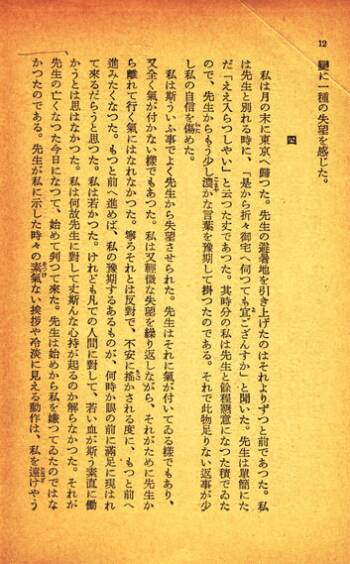 12
變に一種の失望を感じた。
四
私は月の末に東京へ歸つた。先生の避暑地を引き上げたのはそれよりずつと前であつた。私
は先生と別れる時に、「是から折々御宅へ伺つても宜ござんすか」と聞いた。先生は單簡にた
だ「ええ入らつしやい」と云つた丈であつた。其時分の私は先生と餘程懇意になつた積でゐた
ので、先生からもう少し濃かな言葉を豫期して掛つたのである。それで此物足りない返事が少
し私の自信を傷めた。
私は斯ういふ事でよく先生から失望させられた。先生はそれに氣が付いてゐる樣でもあり、
又全く氣が付かない樣でもあつた。私は又輕微な失望を繰り返しながら、それがために先生か
ら離れて行く氣にはなれなかつた。寧ろそれとは反對で、不安に搖かされる度に、もつと前へ
進みたくなつた。もつと前へ進めば、私の豫期するあるものが、何時か眼の前に滿足に現はれ
て來るだらうと思つた。私は若かつた。けれども凡ての人間に對して、若い血が斯う素直に働
かうとは思はなかつた。私は何故先生に對して丈斯んな心持が起るのか解らなかつた。それが
先生の亡くなつた今日になつて、始めて判つて來た。先生は始めから私を嫌つてゐたのではな
かつたのである。先生が私に示した時々の素氣ない挨拶や冷淡に見える動作は、私を遠けやう